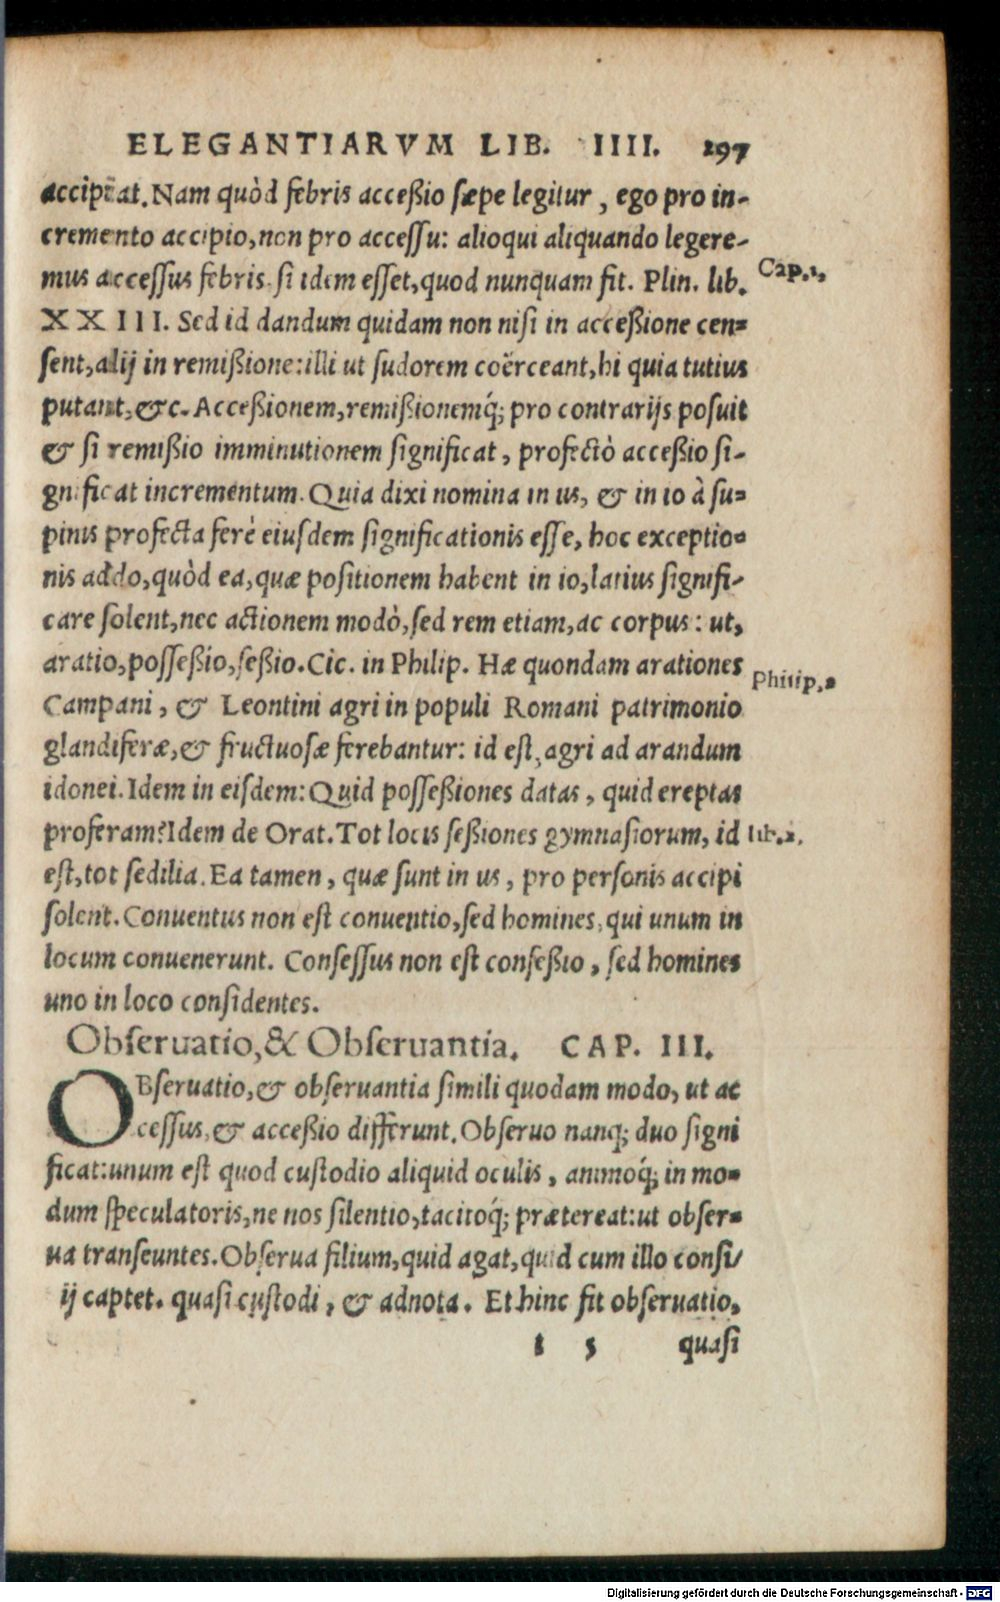 ELEGANTIARVM LIB. IIII. 197
accipiat. Nam quòd febris acceßio sæpe legitur, ego pro in-
cremento accipio, non pro accessu: alioqui aliquando legere-
mus accessus febris. si idem esset, quod nunquam fit. Plin. lib. Cap.1,
XXIII. Sed id dandum quidam non nisi in acceßione cen-
sent, alij in remißione: illi ut sudorem coërceant, hi quia tutius
putant, &c. Acceßionem, remißionemq́; pro contrarijs posuit
& si remißio imminutionem significat, profectò acceßio si-
gnificat incrementum. Quia dixi nomina in us, & in io à su-
pinis profecta ferè eiusdem significationis esse, hoc exceptio-
nis addo, quòd ea, quæ positionem habent in io, latius signifi-
care solent, nec actionem modò, sed rem etiam, ac corpus: ut,
aratio, posseßio, seßio. Cic. in Philip. Hæ quondam arationes Philip.2
Campani, & Leontini agri in populi Romani patrimonio
glandiferæ, & fructuosæ ferebantur: id est, agri ad arandum
idonei. Idem in eisdem: Quid posseßiones datas, quid ereptas
proferam? Idem de Orat. Tot locis seßiones gymnasiorum, id lib.2.
est, tot sedilia. Ea tamen, quæ sunt in us, pro personis accipi
solent. Conuentus non est conuentio, sed homines, qui unum in
locum conuenerunt. Consessus non est conseßio, sed homines
uno in loco considentes.
Obseruatio, & Obseruantia. CAP. III.
OBseruatio, & obseruantia simili quodam modo, ut ac
cessus, & acceßio differunt. Obseruo nanq; duo signi
ficat: unum est quod custodio aliquid oculis, animoq́; in mo-
dum speculatoris, ne nos silentio, tacitoq́; prætereat: ut obser-
ua transeuntes. Obserua filium, quid agat, quid cum illo consi/
ij captet. quasi custodi, & adnota. Et hinc fit obseruatio,
t 5 quasi
Digitalisierung gefördert durch die Deutsche Forschungsgemeinschaft - DFG